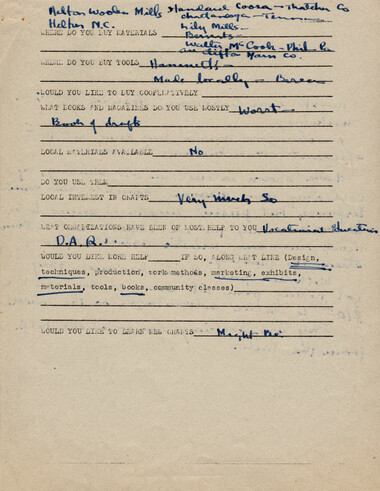 Helton Woolen Mills Standard Coosa-Thatcher Co
Helton N.C. Chattanooga - Tenn
WHERE DO YOU BUY MATERIALS Lily Mills -
Bernats -
Walter McCook - Phila
Yarn Co.
WHERE DO YOU BUY TOOLS Hammett -
Made locally - Berea
WOULD YOU LIKE TO BUY COOPERATIVELY
WHAT BOOKS AND MAGAZINES DO YOU USE MOSTLY Worst -
Book of drafts
LOCAL MATERIALS AVAILABLE No
DO YOU USE THEM
LOCAL INTEREST IN CRAFTS Very much so
WHAT ORGANIZATIONS HAVE BEEN OF MOST HELP TO YOU Vocational Education
D.A.R.
WOULD YOU LIKE MORE HELP IF SO, ALONG WHAT LINE (Design,
techniques, production, work methods, marketing, exhibits,
materials, tools, books, community classes)
WOULD YOU LIKE TO LEARN NEW CRAFTS Might be.